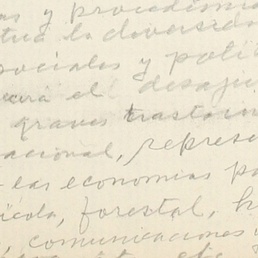 as y procedimi
tra la diversida
sociales y polí
para el desaju
graves trastorn
acional, represe
las economías pa
ícola, forestal, h
, comunicaciones